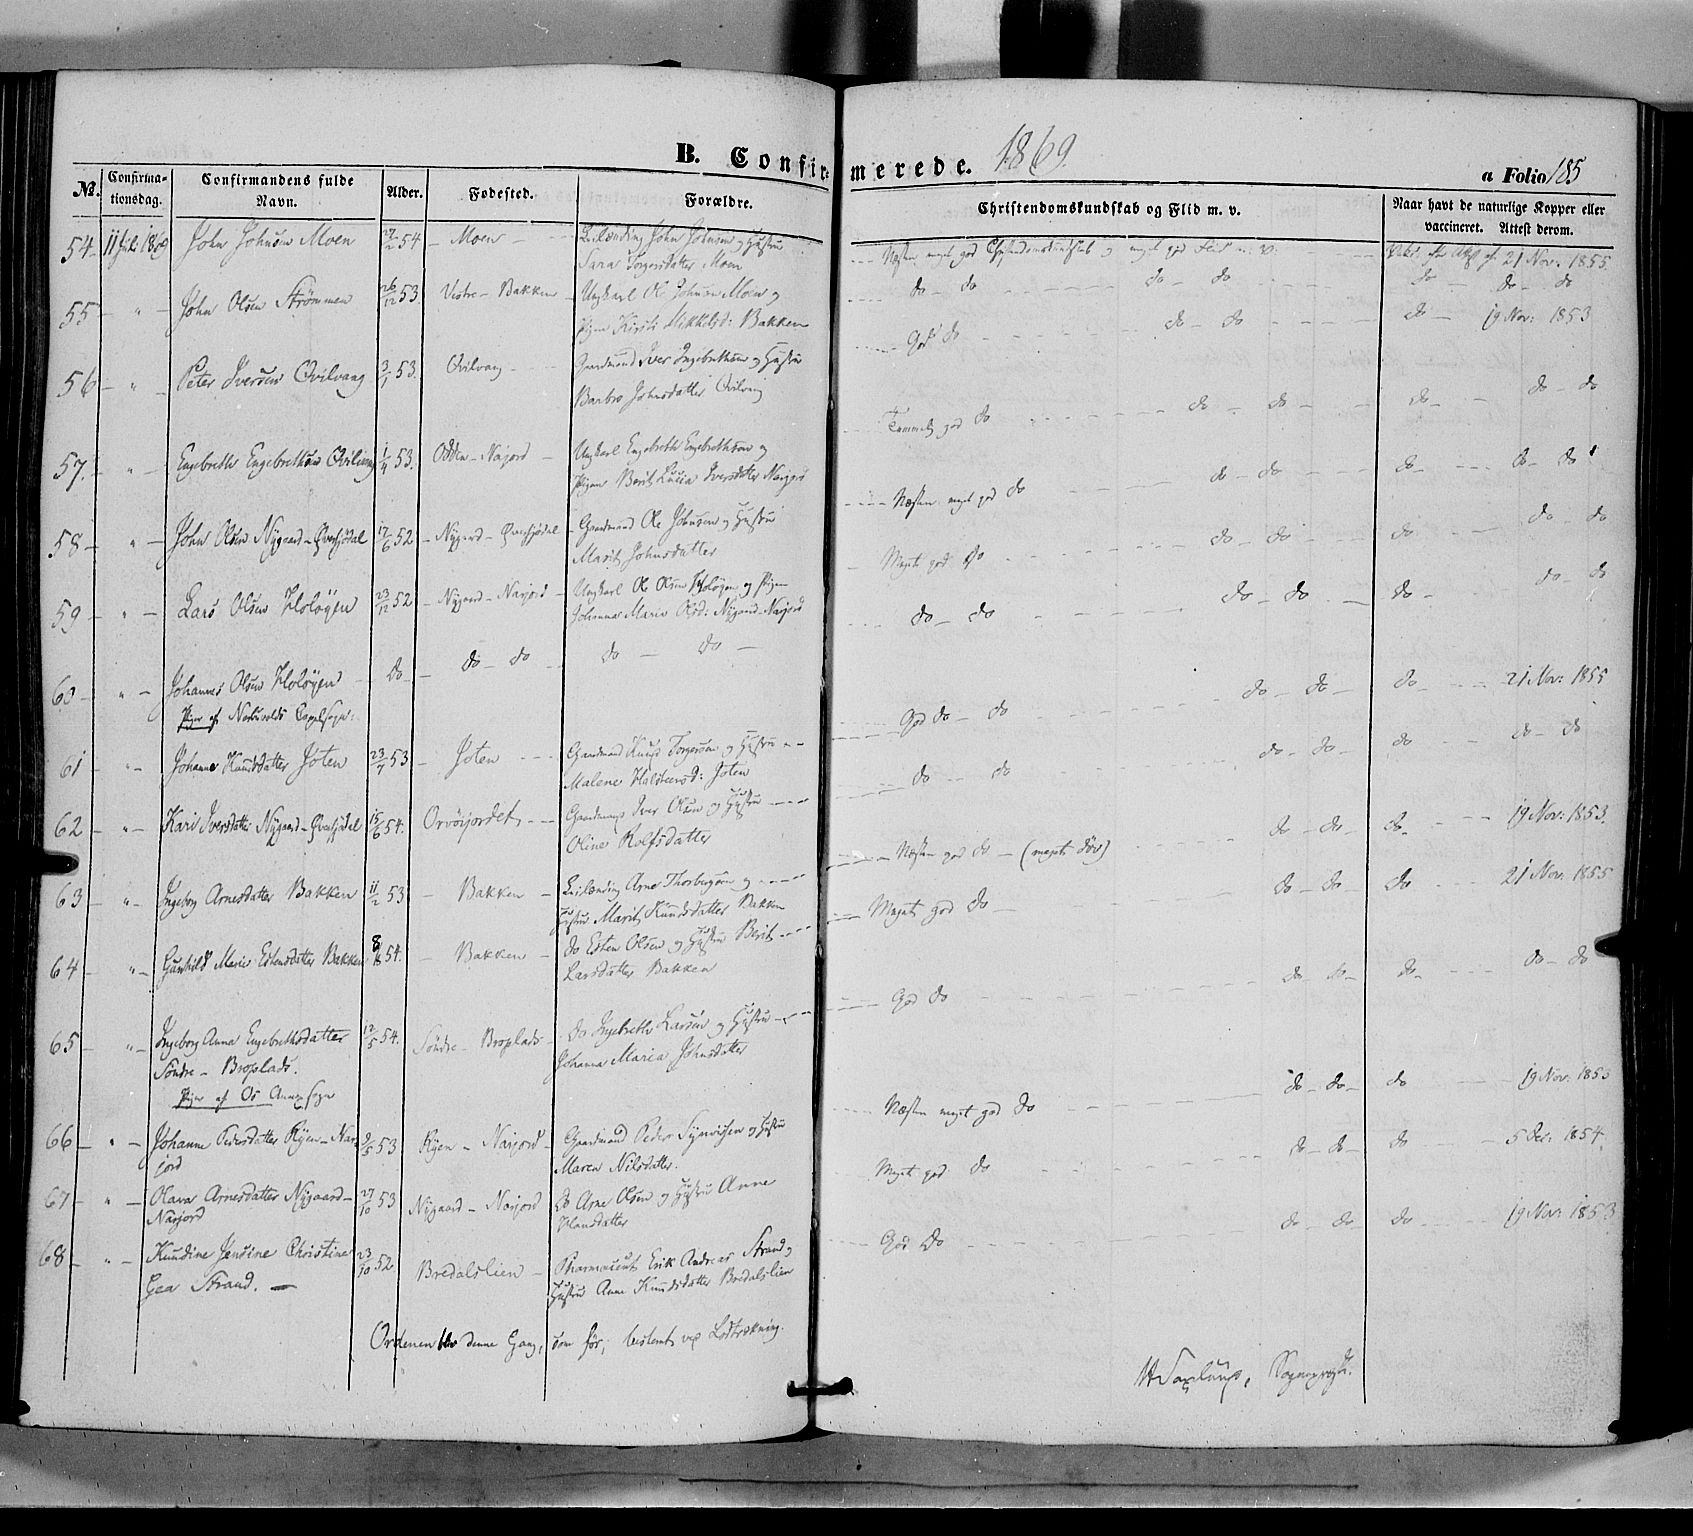 B. Confirmerede. 1869.
a Folio 185
No. Confirmationsdag. Confirmandens fulde Navn. Alder. Fødested. Forældre. Christendomskundskab og Flid m. v. Naar havt de naturlige Kopper eller vaccineret. Attest derom.
54 11 Juli 1869 John Johnsen Moen 54 Moen Leilænding John Johnsen og Hustru
Sara Torgersdatter Moen Næsten meget god Christendomskundskab og meget god Flid m. v. 21 Nov: 1855.
55 " John Olsen Strømmen 26/12 53. Vestre - Bakken Ungkarl Ole Johnsen Moen og
Pigen Kirsti Mikkelsd: Bakken do do do do do do do
56 " Peter Iversen Qvilvang 3/1 53. Qvilvang Gaardmand Iver Ingebrethsen og Hustru
Barbro Johnsdatter Qvilvang God do do do do 19 Nov: 1853
57. " Engebreth Engebrethsen Qvilvang 1/4 53. Odden - Narjord Ungkarl Engebreth Engebrethsen og
Pigen Berit Lucia Iversdatter Narjord Temmelig god do do do do do do
58 " John Olsen Nygaard - Øversjødal 17/6 52 Nygaard - Øversjødal Gaardmand Ole Johnsen og Hustru
Marit Johnsdatter Næsten meget god do do do do do do
59 " Lars Olsen Holøyen 23/12 52 Nygaard - Narjord Ungkarl Ole Olsen Holøyen og Pigen
Johanna Maria Olsd: Nygaard - Narjord Meget god do do do do do do
60 " Johannes Olsen Holøyen do do do do do do do do do do do do
Piger af
61 " Johanne Knudsdatter Joten 23/7 53 Joten Gaardmand Knud Torgersen og Hustru
Malene Halstensd: Joten God do do do do do 21 Nov: 1855
62 " Kari Iversdatter Nygaard - Øversjødal 15/6 54. Orvøsjordet Iver Olsen og Hustru
Oline Rolfsdatter do do do do do do do
63 " Ingeborg Arnesdatter Bakken 11/2 53 Bakken Leilænding Arne Thorbergsen og
Hustru Marit Knudsdatter Bakken Næsten god do (meget døv) do do do 19 Nov: 1853.
64 " Gunhild Marie Estensdatter Bakken 54. Bakken do Esten Olsen og Hustru Berit
Larsdatter Bakken Meget god do do do do 21 Nov: 1855
65 " Ingeborg Anna Engebrethsdatter 12/5 54. Søndre - Broplads do Ingebreth Larsen og Hustru
Søndre - Broplads. Johanna Maria Johnsdatter God do do do do do do
Piger af Os Annexsogn
66 " Johanne Pedersdatter Ryen - Nar- 9/5 53 Ryen - Narjord Gaardmand Peder Syvertsen og Hustru
jord Maren Nilsdatter. Næsten meget god do do do do 19 Nov: 1853
67 " Olava Arnesdatter Nygaard - 27/10 53 Nigaard - Narjord do Arne Olsen og Hustru Anne
Narjord Hansdatter Meget god do do do do 5 Dec: 1854.
68 " Knudine Jensine Christine 23/10 52 Bredalslien Pharmaceut Erik Andreas Strand og
Gea Strand. Hustru Anne Knudsdatter Bredalslien God do do do do 19 Nov: 1853
Ordenen blev denne Gang, som før, bestemt ved Lodtrækning.
Sognepræst.